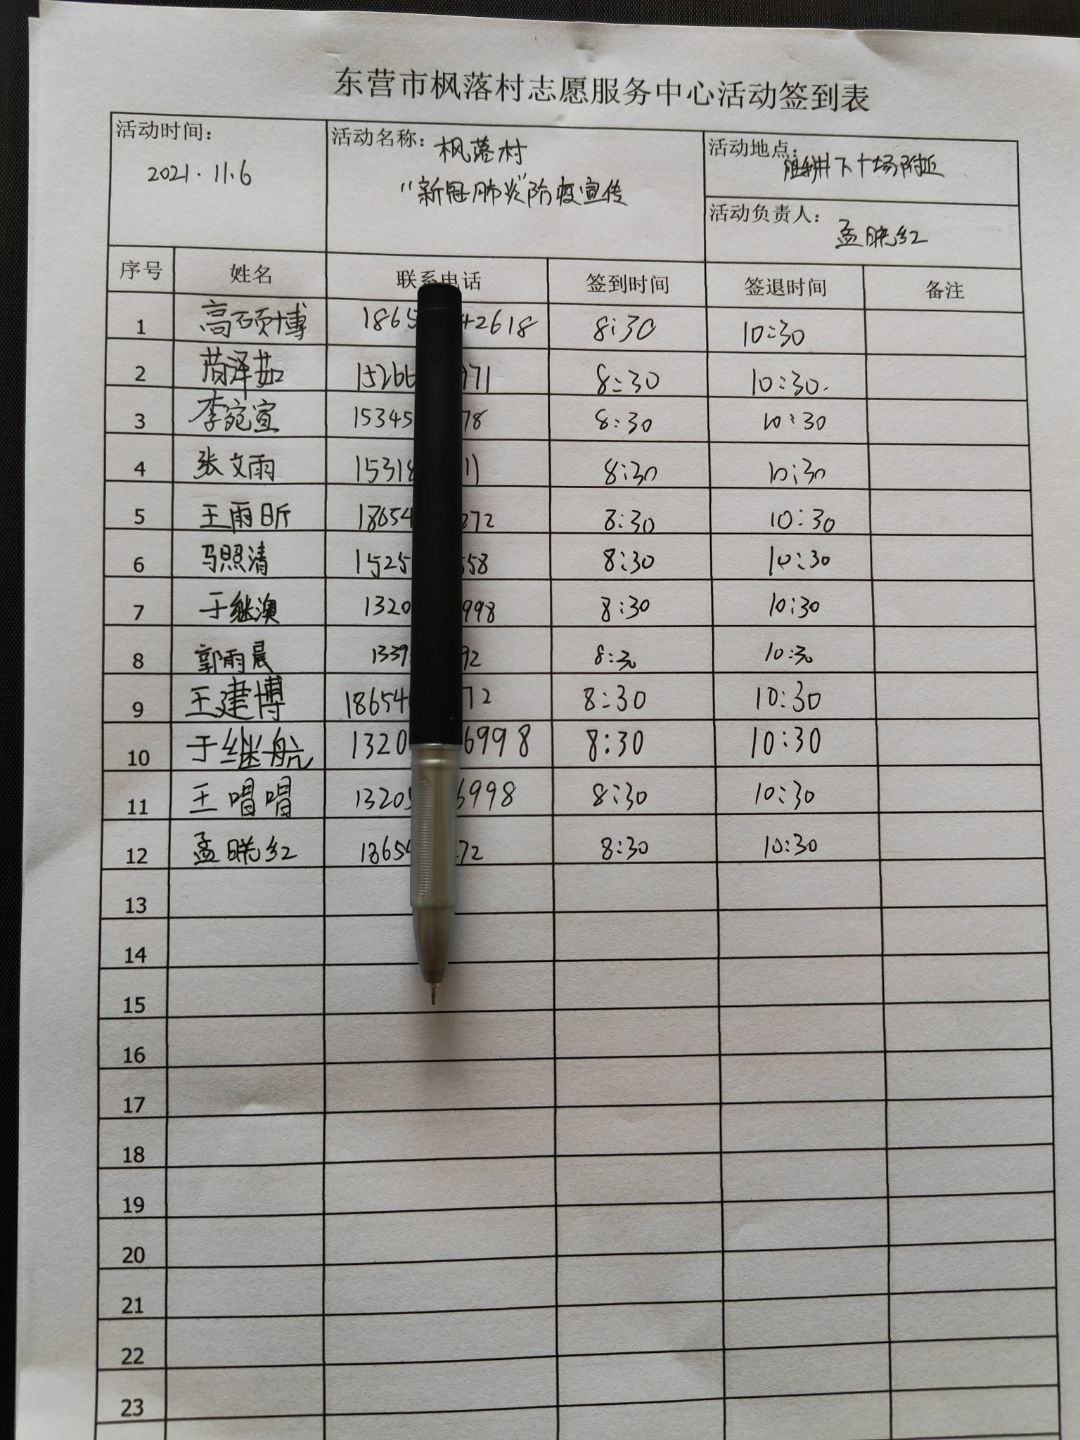 东营市枫落村志愿服务中心活动签到表
活动时间： 2021.11.6
活动名称： 枫落村
"新冠肺炎"防疫宣传
活动地点： 广场附近
活动负责人： 孟晓红
序号 姓名 联系电话 签到时间 签退时间 备注
1 高硕博 1865 42618 8:30 10:30
2 泽茹 15266 71 8:30 10:30.
3 李宛宣 15345 78 8:30 10:30
4 张文雨 15318 11 8:30 10:30
5 王雨昕 18654 072 8:30 10:30
6 马照清 1525 558 8:30 10:30
7 于继澳 1320 998 8:30 10:30
8 郭雨晨 1339 92 8:30 10:30
9 王建博 18654 72 8:30 10:30
10 于继航 1320 6998 8:30 10:30
11 王唱唱 13205 6998 8:30 10:30
12 孟晓红 18654 72 8:30 10:30
13
14
15
16
17
18
19
20
21
22
23